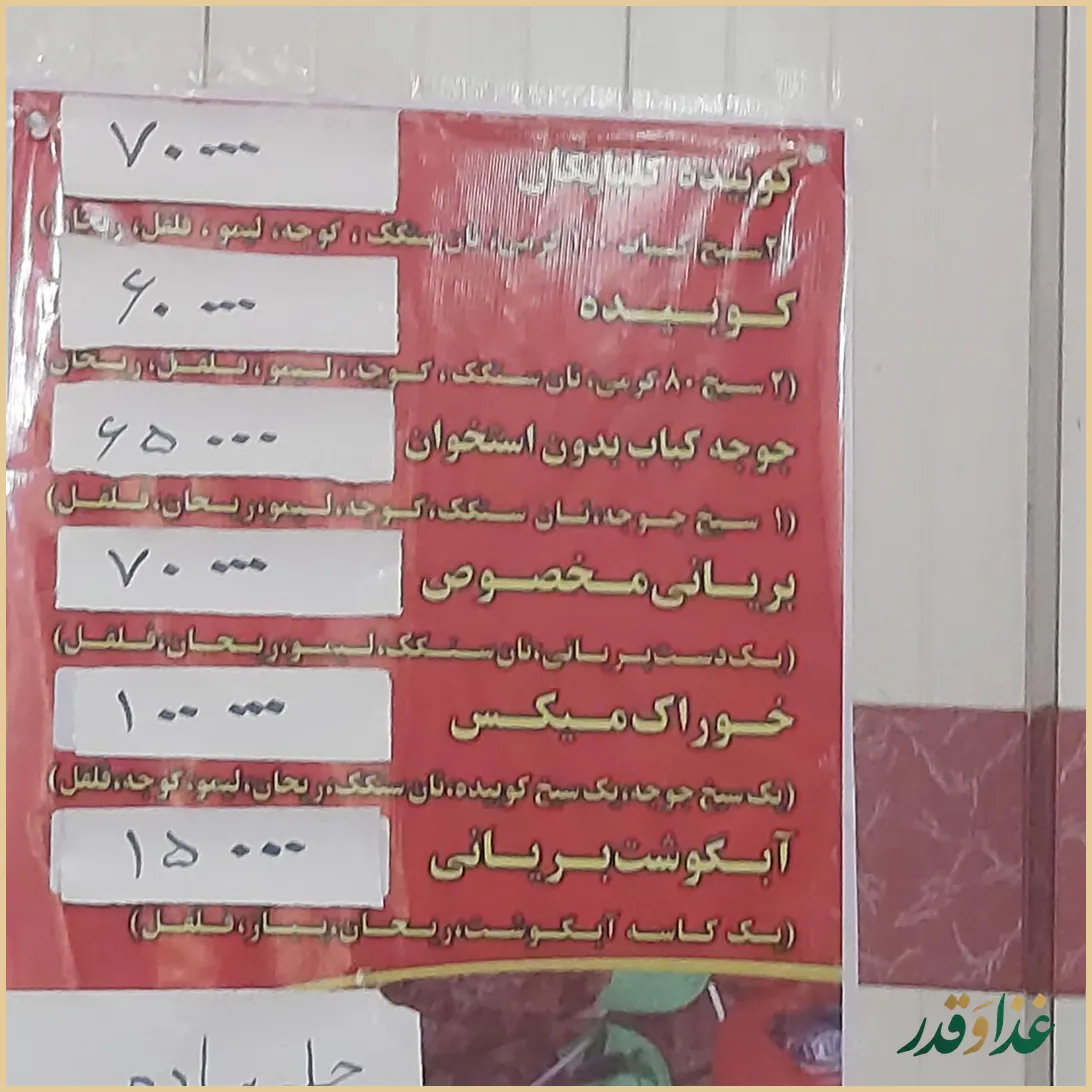 کوبیده گلپایگان ۷۰۰۰۰
(۲ سیخ کباب ۱۰۰ گرمی، نان سنگک، گوجه، لیمو، فلفل، ریحان)
کوبیده ۶۰۰۰۰
(۲ سیخ ۸۰ گرمی، نان سنگک، گوجه، لیمو، فلفل، ریحان
جوجه کباب بدون استخوان ۶۵۰۰۰
(۱ سیخ جوجه، نان سنگک، گوجه، لیمو، ریحان، فلفل)
بریانی مخصوص ۷۰۰۰۰
(یک دست بریانی، نان سنگک، لیمو، ریحان، فلفل)
خوراک میکس ۱۰۰۰۰۰
(یک سیخ جوجه، یک سیخ کوبیده، نان سنگک، ریحان، لیمو، گوجه، فلفل)
آبگوشت بریانی ۱۵۰۰۰
(یک کاسه آبگوشت، ریحان، پیاز، فلفل)
غذا و قدر